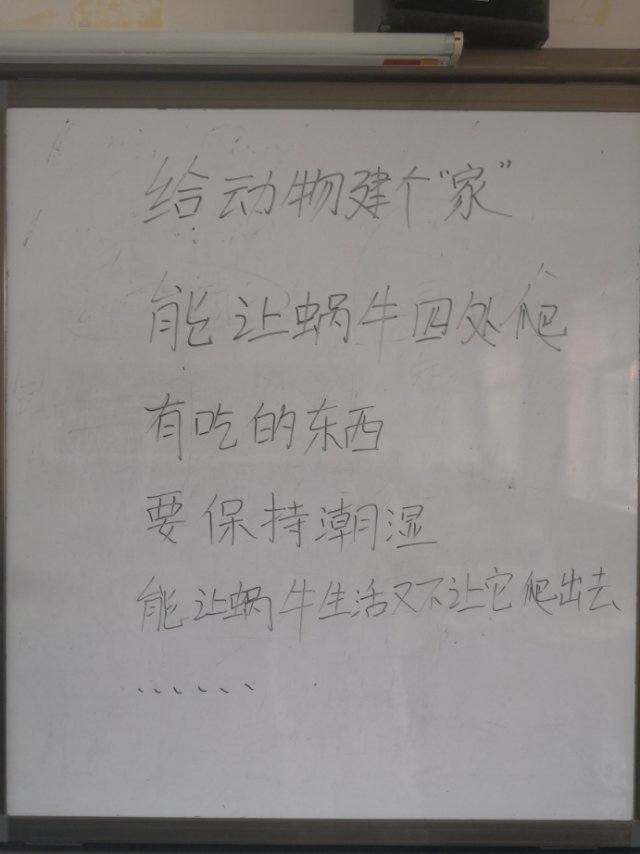 给动物建个“家”
能让蜗牛四处爬
有吃的东西
要保持潮湿
能让蜗牛生活又不让它爬出去
......